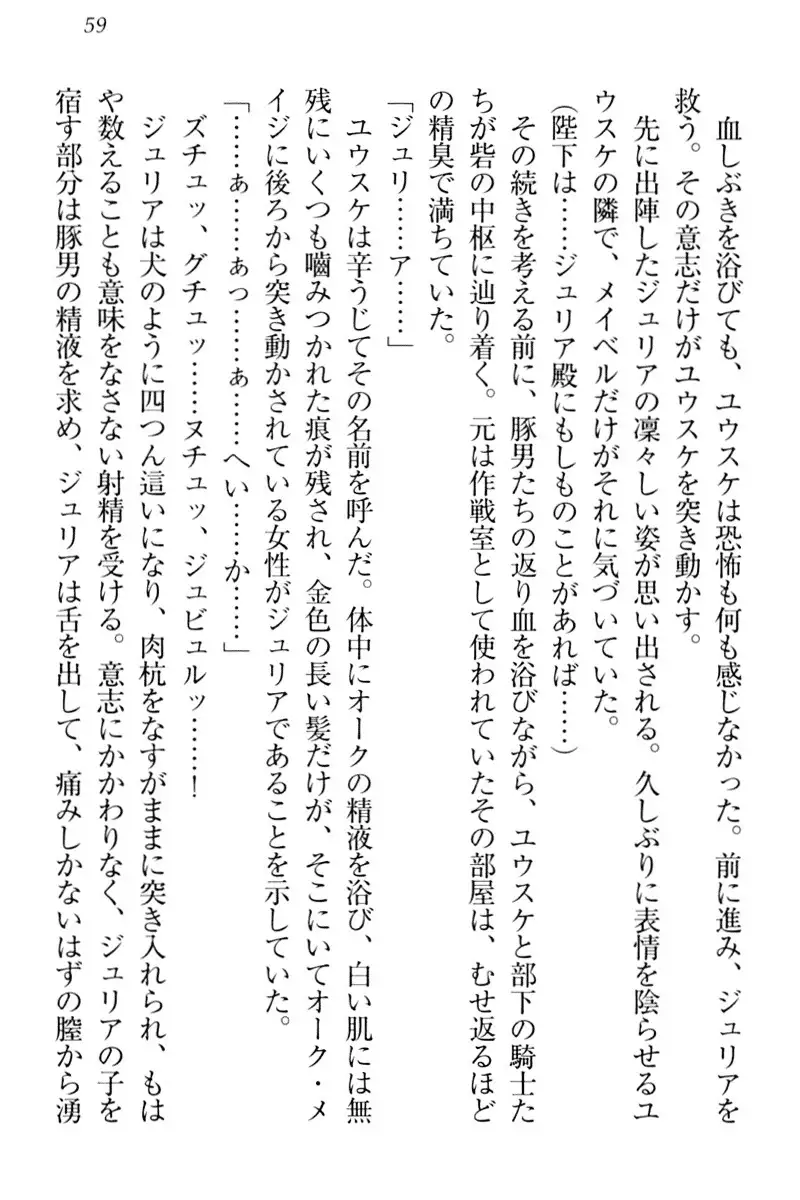 59
血しぶきを浴びても、ユウスケは恐怖も何も感じなかった。前に進み、ジュリアを
救う。その意志だけがユウスケを突き動かす。
先に出陣したジュリアの凜々しい姿が思い出される。久しぶりに表情を陰らせるユ
ウスケの隣で、メイベルだけがそれに気づいていた。
(陛下は……ジュリア殿にもしものことがあれば……)
その続きを考える前に、豚男たちの返り血を浴びながら、ユウスケと部下の騎士た
ちが砦の中枢に辿り着く。元は作戦室として使われていたその部屋は、むせ返るほど
の精臭で満ちていた。
「ジュリ……ア……」
ユウスケは辛うじてその名前を呼んだ。体中にオークの精液を浴び、白い肌には無
残にいくつも嚙みつかれた痕が残され、金色の長い髪だけが、そこにいてオーク・メ
イジに後ろから突き動かされている女性がジュリアであることを示していた。
「……ぁ……ぁっ……ぁ……へい……か……」
ズチュッ、グチュッ……ヌチュッ、ジュビュルッ……!
ジュリアは犬のように四つん這いになり、肉杭をなすがままに突き入れられ、もは
や数えることも意味をなさない射精を受ける。意志にかかわりなく、ジュリアの子を
宿す部分は豚男の精液を求め、ジュリアは舌を出して、痛みしかないはずの膣から湧